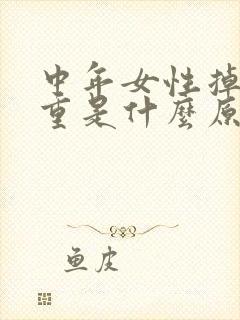 中年女性掉
重是什麼原
鱼皮